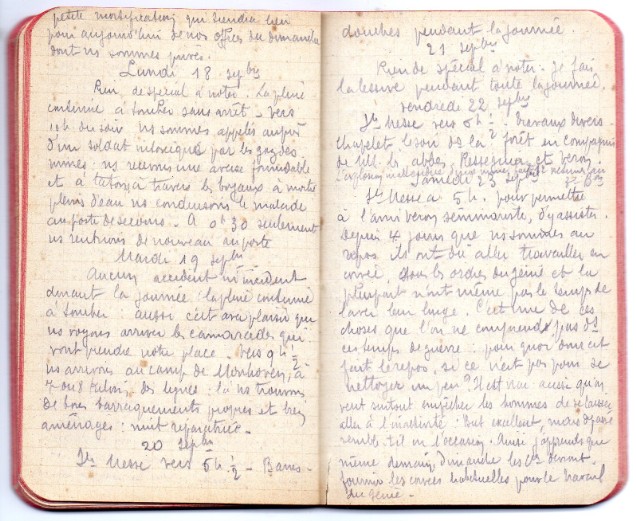 petite mortification, qui tiendra lieu
pour aujourd'hui de nos offices du dimanche
dont ns sommes privés.
Lundi 18 7bre
Rien de spécial à noter. La pluie
continue à tomber sans arrêt. Vers
du soir ns sommes appelés auprès
d'un soldat intoxiqué par les gaz des
mines: ns recevons une averse formidable
et à tâtons à travers les boyaux à moitié
pleins d'eau ns conduisons le malade
au poste de secours. À 0h30 seulement
ns rentrions de nouveau au poste
Mardi 19 7bre
Aucun accident ni incident
durant la journée: la pluie continue
à tomber: aussi c'est avec plaisir que
ns voyons arriver les camarades qui
vont prendre notre place. Vers 9h 1/2
ns arrivons au camp de à
7 ou 8 kilom. des lignes: là ns trouvons
de bons barraquements propres et bien
aménagés: nuit réparatrice.
20 7bre
Ste Messe vers 6h 1/2 - Bains -
douches pendant la journée.
21 7bre
Rien de spécial à noter. Je fais
la lessive pendant toute la journée.
Vendredi 22 7bre
Ste Messe vers 6h 1/2 Travaux divers
chapelet le soir ds la forêt en compagnie
de MM. les abbés et Veron.
Samedi 23 7bre
Ste Messe à 5h. pour permettre
à l'ami Veron, séminariste, d'y assister.
Depuis 4 jours que ns sommes au
repos ils ont dû aller travailler en
corvée, sous les ordres du génie et la
plupart n'ont même pas le temps de
laver leur linge. C'est une de ces
choses que l'on ne comprend pas ds
ces temps de guerre: pourquoi donc est
fait le repos, si ce n'est pas pour se
nettoyer un peu? Il est vrai aussi qu'on
veut surtout empêcher les hommes de se laisser
aller à l'inactivité: But excellent, mais dépassé
semble-t-il en l'occasion. Ainsi j'apprends que
même demain, dimanche les Cies devront
fournir les corvées habituelles pour le travail
du génie.